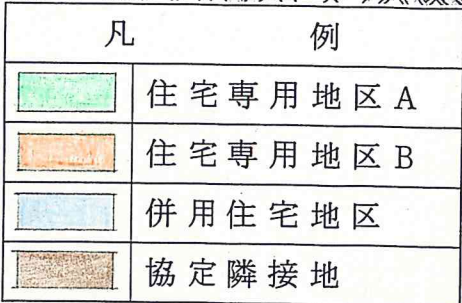 凡 例
住宅専用地区A
住宅専用地区B
併用住宅地区
協定隣接地